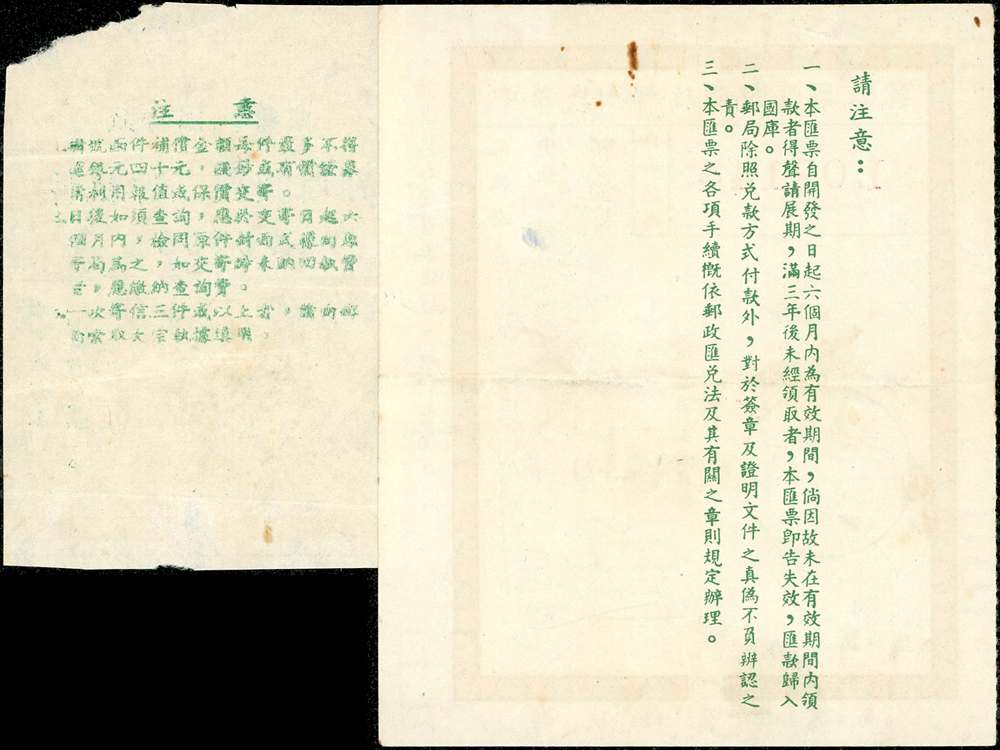 請注意：
一、本匯票自開發之日起六個月內為有效期間，倘因故未在有效期間內領
款者得聲請展期，滿三年後未經領取者，本匯票卽告失效，匯款歸入
國庫。
二、郵局除照兌款方式付款外，對於簽章及證明文件之真偽不負辨認之
責。
三、本匯票之各項手續概依郵政匯兌法及其有關之章則規定辦理。
注 意
函件補償金額每件最多不得
元四十元，
報值或保價交寄。
日後如須查詢，應於交寄日起六
個月內，檢同原件封面式樣向原
局為之，如交寄時未納回執費
者，應繳納查詢費。
一次寄信三件或以上者，請向郵
局索取大宗執據填用。